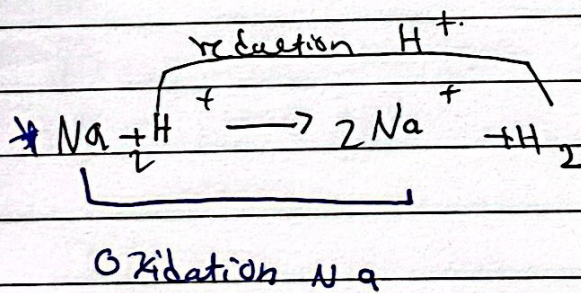 reduction H⁺·
* Na + 2H⁺ ⟶ 2Na⁺ + H₂
Oxidation Na